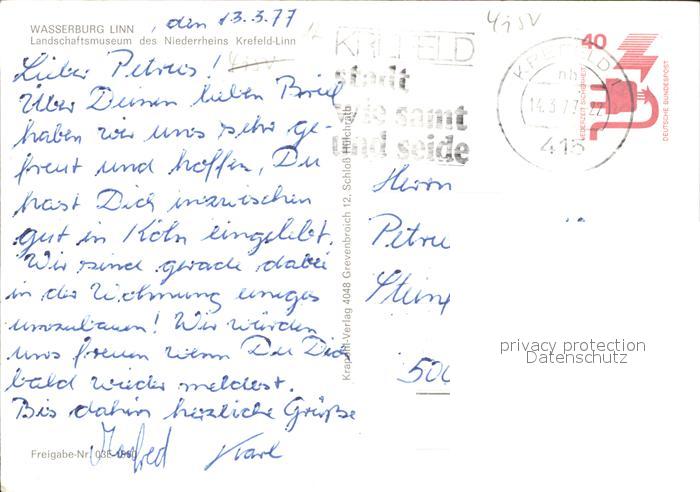 WASSERBURG LINN, den 13.3.77
Landschaftsmuseum des Niederrheins Krefeld-Linn
Lieber Petrus!
Über Deinen lieben Brief
haben wir uns sehr ge-
freut und hoffen, Du
hast Dich inzwischen
gut in Köln eingelebt.
Wir sind gerade dabei
in der Wohnung einiges
umzubauen! Wir würden
uns freuen wenn Du Dich
bald wieder meldest.
Bis dahin herzliche Grüße
Manfred Karl
Freigabe-Nr. 03E
Krapohl-Verlag 4048 Grevenbroich 12, Schloß Hülchrath
KREFELD
stadt
wie samt
und seide
KREFELD
14.3.77-22
415
40
JEDERZEIT SICHERHEIT
DEUTSCHE BUNDESPOST
Herrn
Petru
Stein
500
privacy protection
Datenschutz